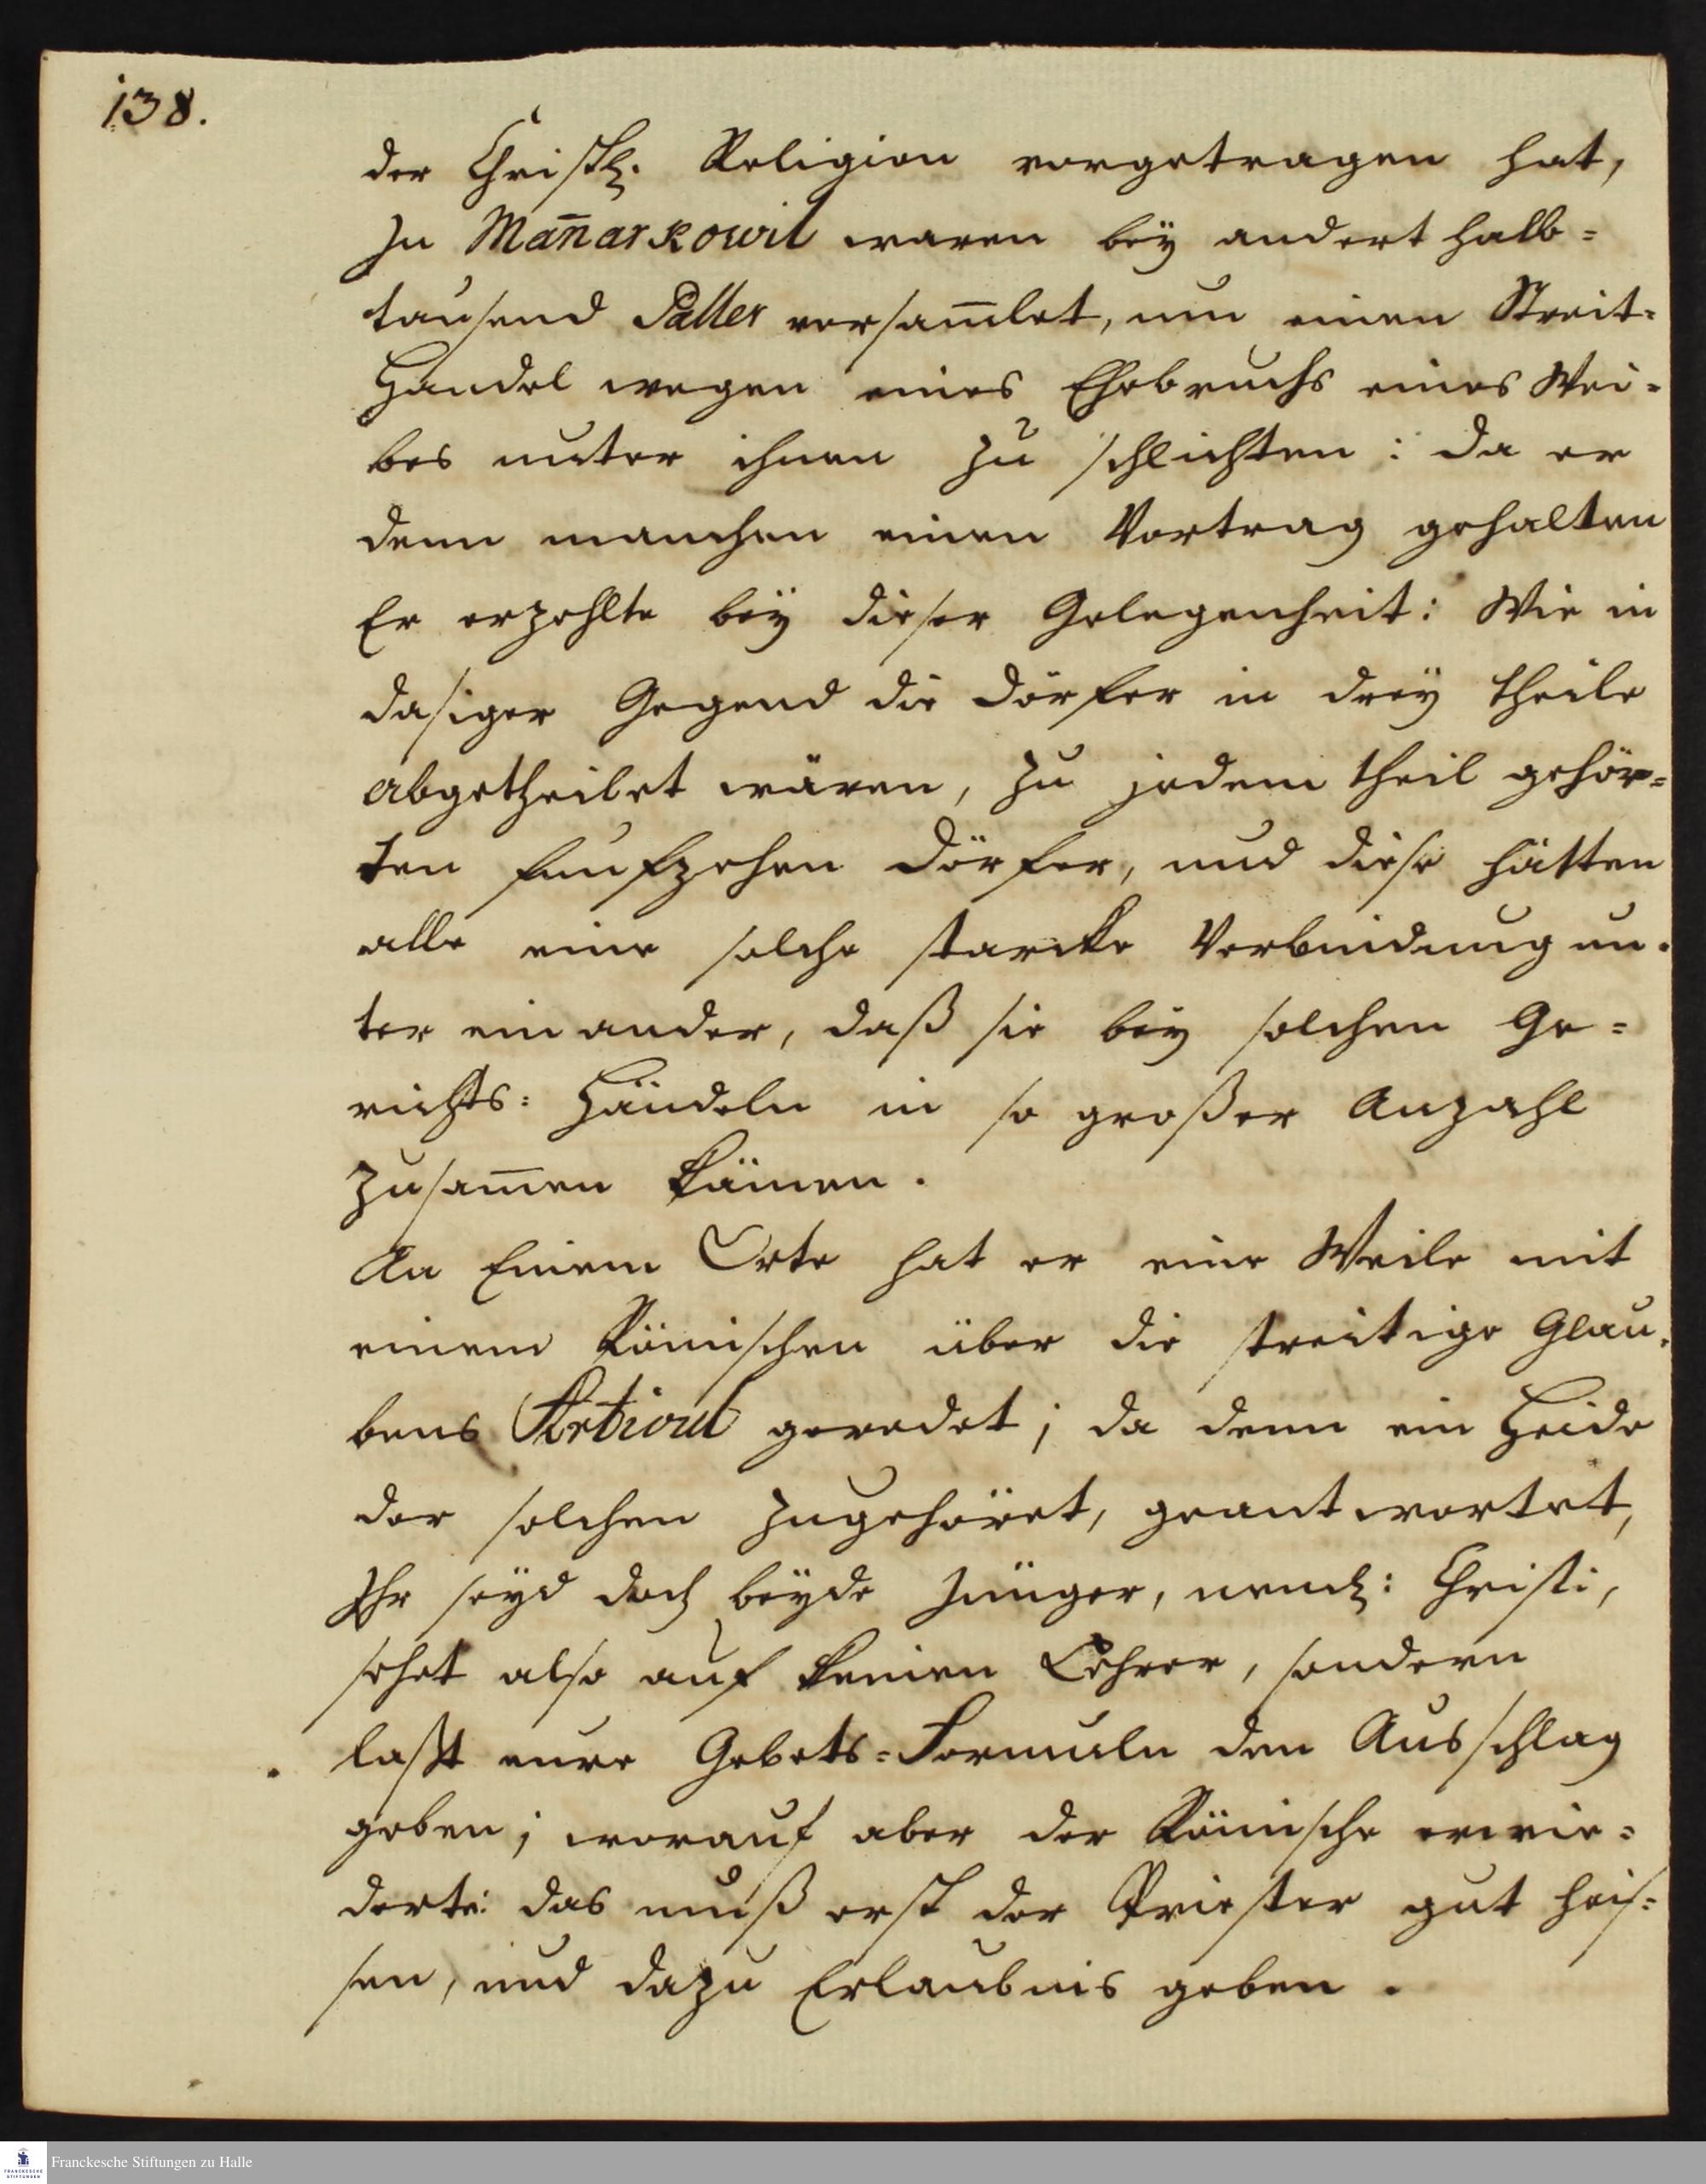 138.
der Christl. Religion vorgetragen hat,
In Man̄arkowil waren beÿ andert halb=
tausend Paller versam̄let, um einen Streit=
Handel wegen eines Ehebruchs eines Wei=
bes unter ihnen zu schlichten: da er
denn manchen einen Vortrag gehalten
Er erzehlte beÿ dieser Gelegenheit: Wie in
dasiger Gegend die Dörfer in dreÿ theile
abgetheilet wären, zu jedem theil gehör=
ten funfzehen Dörfer, und diese hätten
alle eine solche starcke Verbindung un=
ter einander, daß sie beÿ solchen Ge=
richts= Händeln in so großer Anzahl
zusam̄en kämen.
An Einem Orte hat er eine Weile mit
einem Römischen über die streitige Glau=
bens Articul geredet; da denn ein Heide
der solchen zugehöret, geantwortet,
Ihr seÿd doch beÿde Jünger, neml: Christi,
sehet also auf keinen Lehrer, sondern
laßt eure Gebets=Formuln den Ausschlag
geben; worauf aber der Römische erwie=
derte: das muß erst der Priester gut heis=
sen, und dazu Erlaubnis geben.
Franckesche Stiftungen zu Halle
FRANCKESCHE
STIFTUNGEN